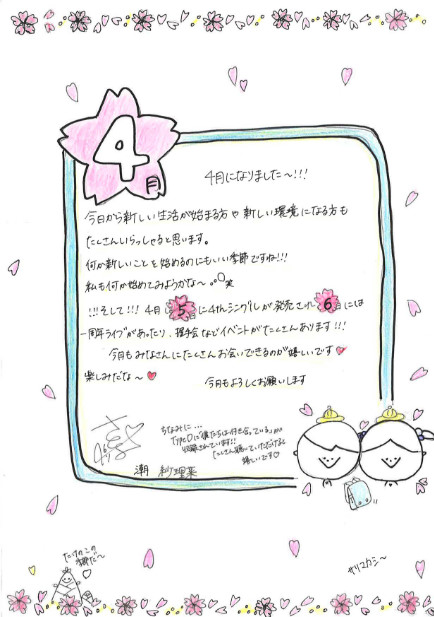 4月
4月になりました〜!!!
今日から新しい生活が始まる方や新しい環境になる方も
たくさんいらっしゃると思います。
何か新しいことを始めるのにもいい季節ですね!!!
私も何か始めてみようかな〜笑
!!!そして!!! 4月5日に4thシングルが発売され6日には
一周年ライブがあったり、握手会などイベントがたくさんあります!!!
今月もみなさんにたくさんお会いできるのが嬉しいです
楽しみだな〜
今月もよろしくお願いします
ちなみに...
TypeDに「僕たちは付き合っている」が
収録されています!!
たくさん聴いていただけると
嬉しいです♡
潮 紗理菜
たけのこの
季節だ〜
サリマカシー